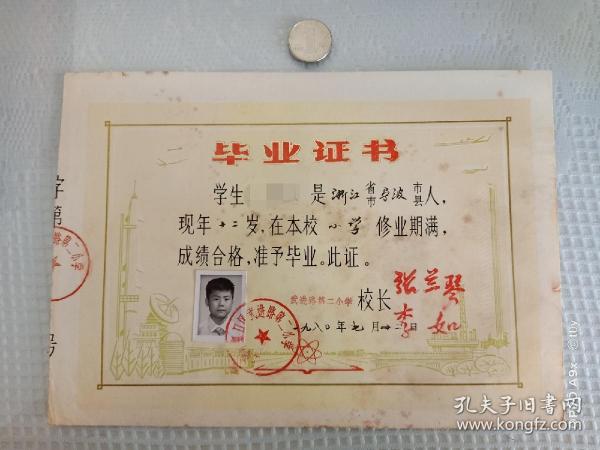 毕业证书
学生 是浙江省市宁波市县人，
现年十二岁，在本校小学修业期满，
成绩合格，准予毕业。此证。
武进路第二小学 校长 张兰琴
李如
一九八〇年七月 日
字第
号
武进路第二小学
孔夫子旧书网
www.kongfz.com